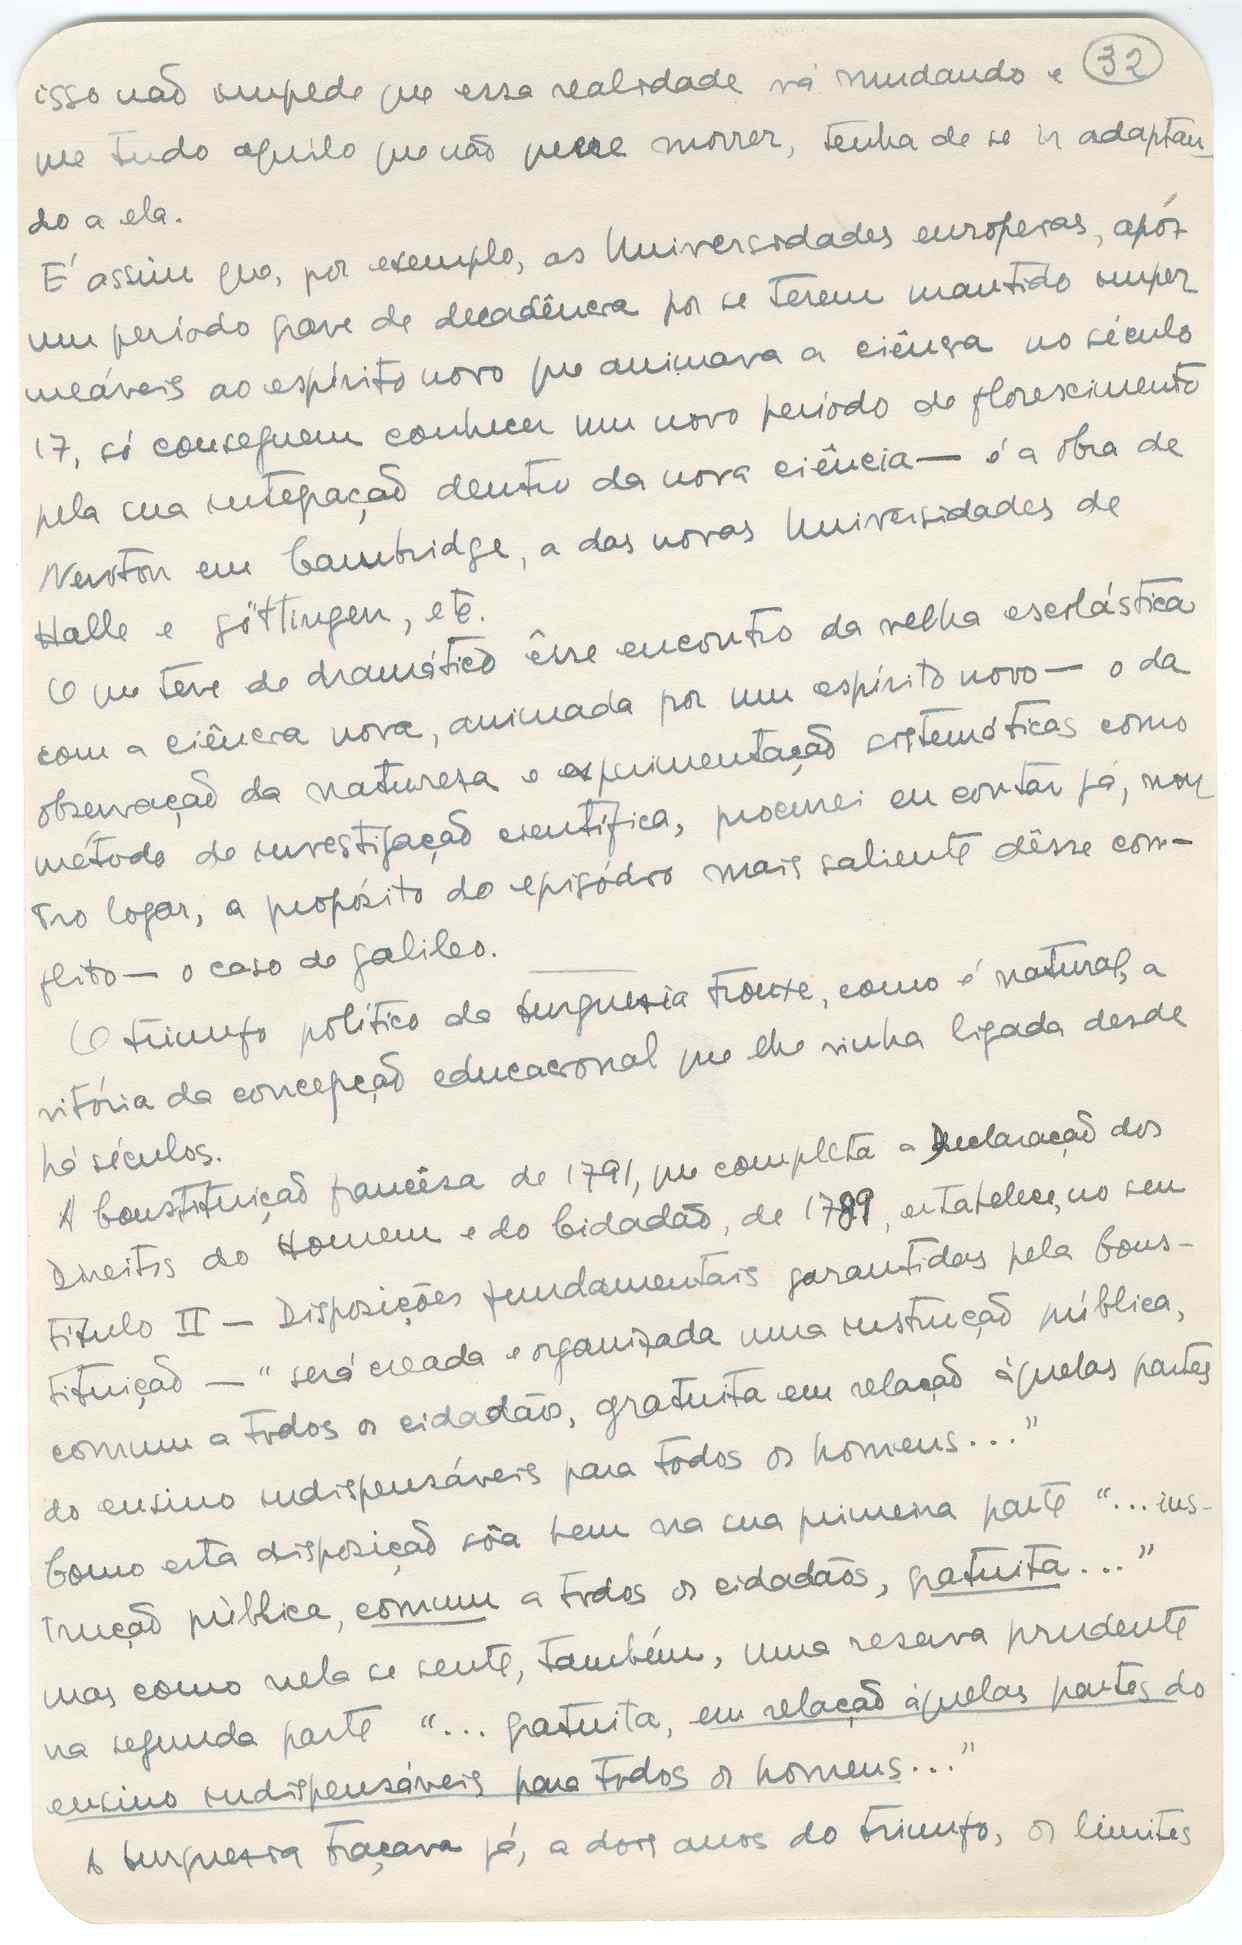 32
isso não impede que essa realidade vá mudando e
que tudo aquilo que não quere morrer, tenha de se ir adaptan-
do a ela.
É assim que, por exemplo, as Universidades europeias, após
um período grave de decadência por se terem mantido imper
meáveis ao espírito novo que animava a ciência no século
17, só conseguem conhecer um novo período de florescimento
pela sua integração dentro da nova ciência — é a obra de
Newton em Cambridge, a das novas Universidades de
Halle e Göttingen, etc.
O que teve de dramático êsse encontro da velha escolástica
com a ciência nova, animada por um espírito novo — o da
observação da natureza e experimentação sistemáticas como
método de investigação científica, procurei eu contar já, nou
tro logar, a propósito do episódio mais saliente dêsse con-
flito — o caso de Galileo.
O triunfo político da burguesia trouxe, como é natural, a
vitória da concepção educacional que lhe vinha ligada desde
há séculos.
A Constituição francêsa de 1791, que completa a Declaração dos
Direitos do Homem e do Cidadão, de 1789, estabelece, no seu
Título II — Disposições fundamentais garantidas pela Cons-
tituição — "será creada e organizada uma instrução pública,
comum a todos os cidadãos, gratuita em relação àquelas partes
do ensino indispensáveis para todos os homens..."
Como esta disposição sôa bem na sua primeira parte "... ins-
trução pública, comum a todos os cidadãos, gratuita..."
mas como nela se sente, também, uma reserva prudente
na segunda parte "... gratuita, em relação àquelas partes do
ensino indispensáveis para todos os homens..."
A burguesia traçava já, a dois anos do triunfo, os limites